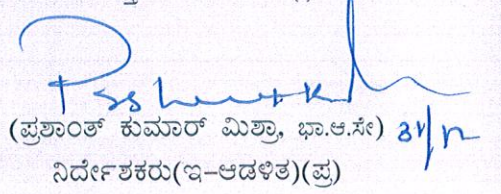 (ಪ್ರಶಾಂತ್ ಕುಮಾರ್ ಮಿಶ್ರಾ, ಭಾ.ಆ.ಸೇ) 31/12
ನಿರ್ದೇಶಕರು(ಇ–ಆಡಳಿತ)(ಪ್ರ)